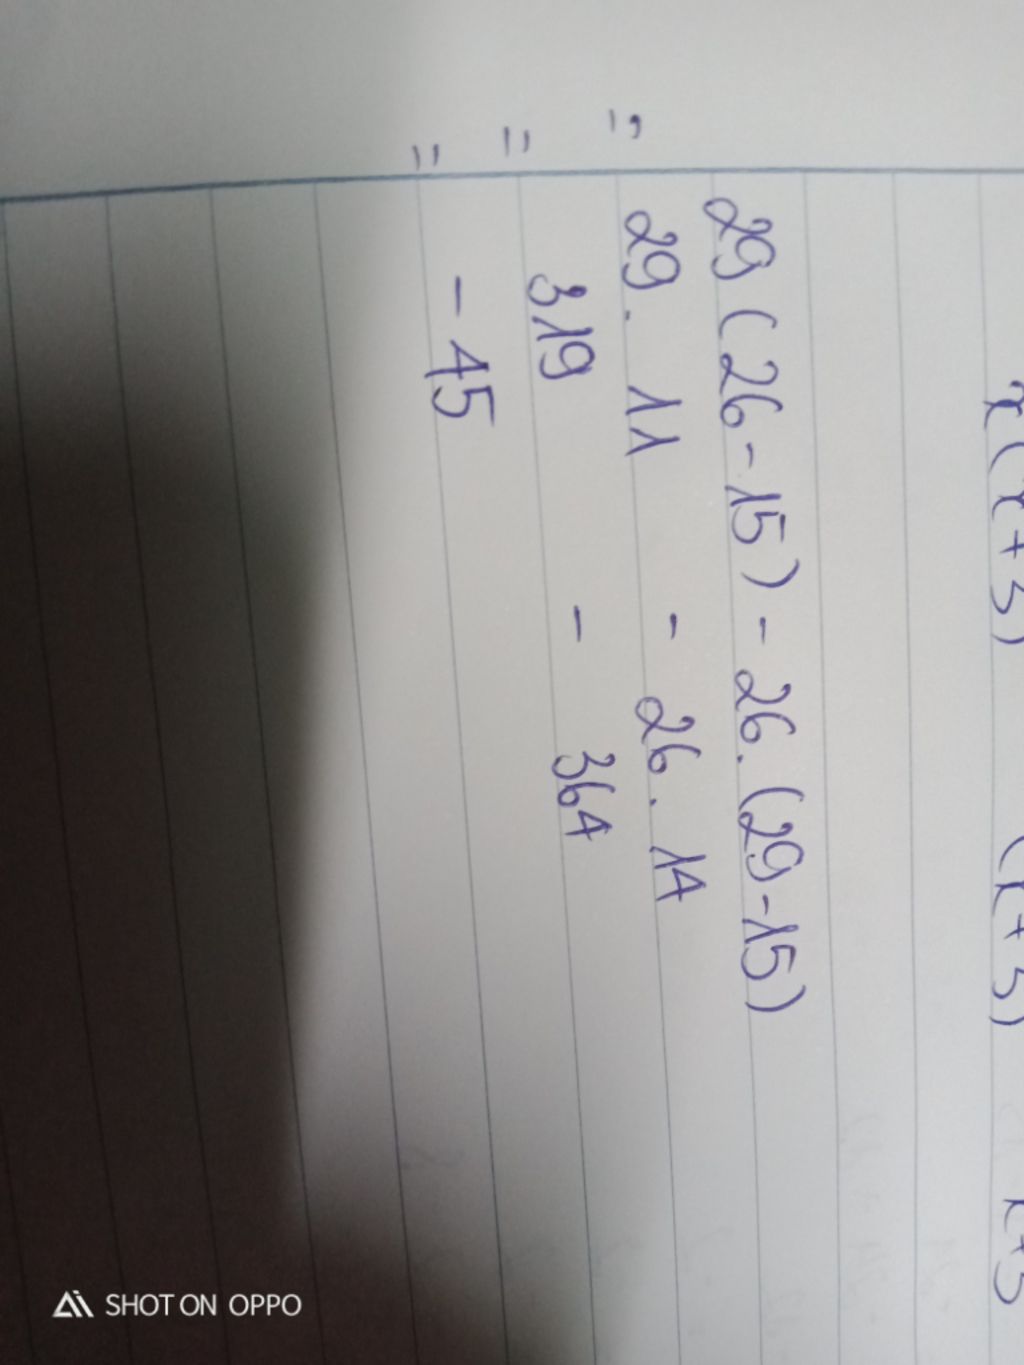 x(x+3) (x+3) x+3
29(26-15) - 26.(29-15)
= 29. 11 - 26. 14
= 319 - 364
= -45
SHOT ON OPPO